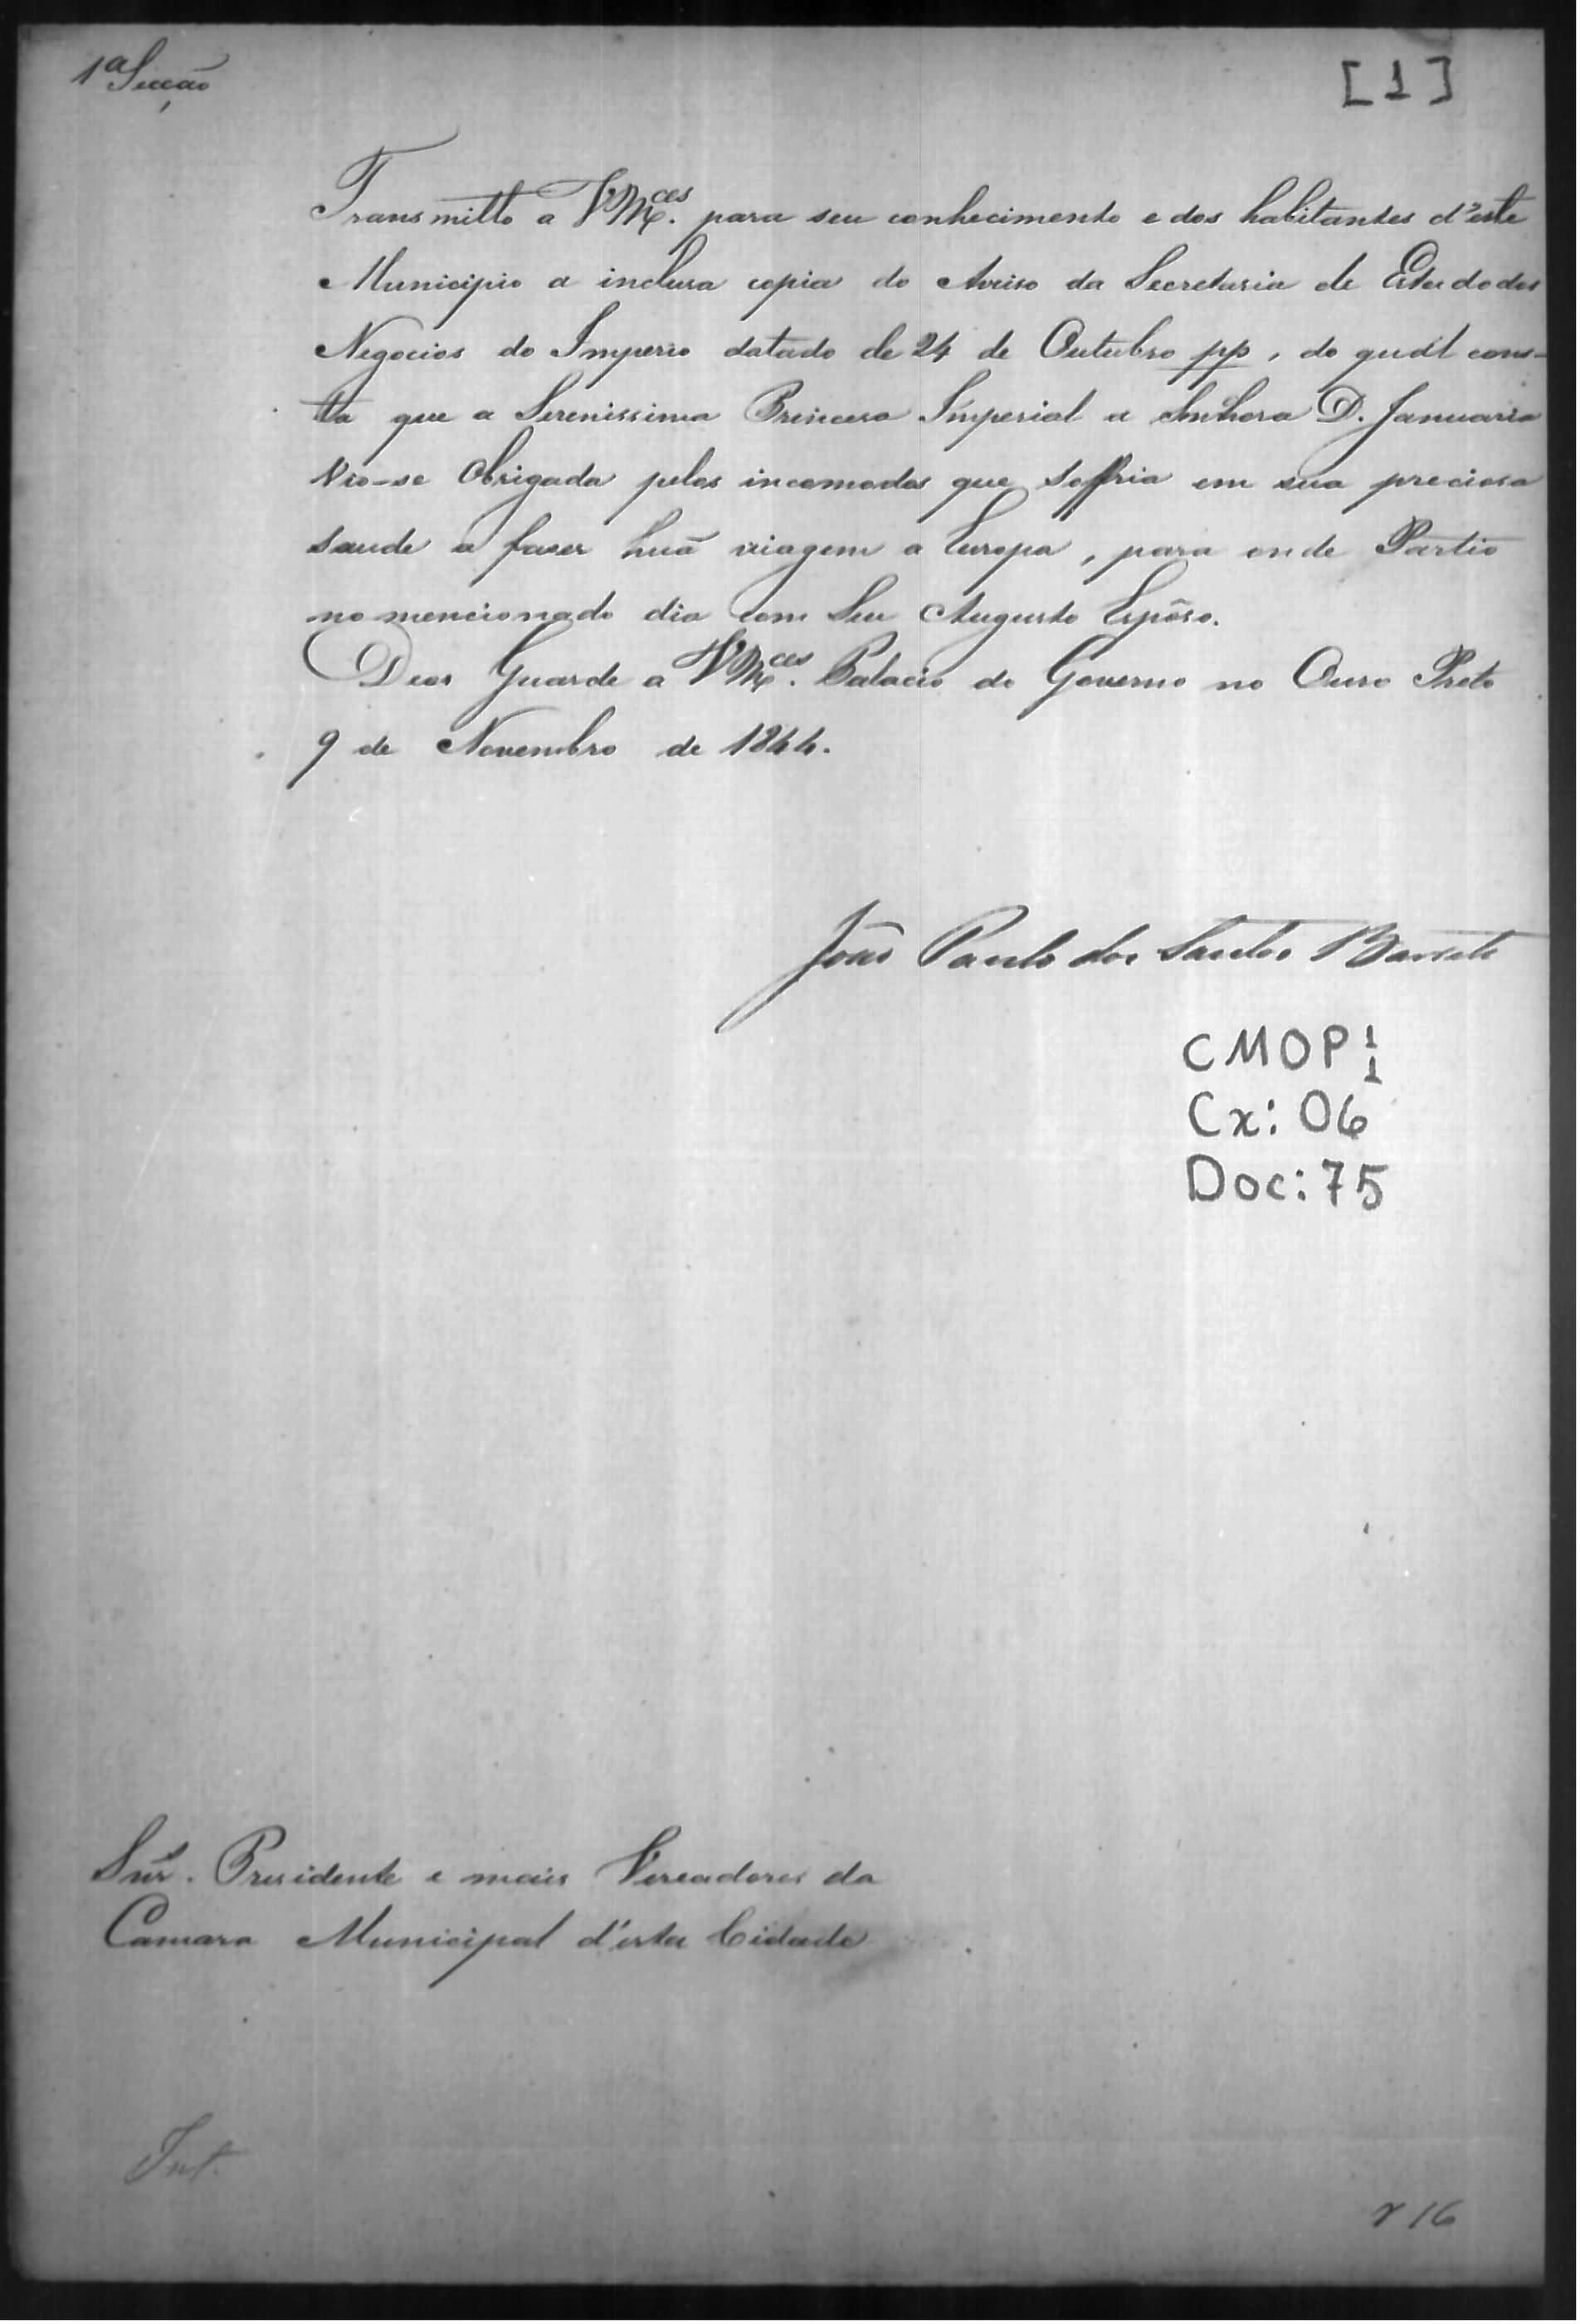 1ª Secção
[1]
Transmitto a VMces. para seu conhecimento e dos habitantes d'este
Municipio a inclusa copia do Aviso da Secretaria de Estado dos
Negocios do Imperio datado de 24 de Outubro pp, do qual cons-
ta que a Serenissima Princesa Imperial a Senhora D. Januaria
Vio-se Obrigada pelos incomodos que soffria em sua preciosa
saude a faser huã viagem a Europa, para onde Partio
no mencionado dia com Seu Augusto Espôso.
Deos Guarde a VMces. Palacio do Governo no Ouro Preto
9 de Novembro de 1844.
João Paulo dos Santos Barreto
CMOP 1/1
Cx: 06
Doc: 75
Snr.s Presidente e mais Vereadores da
Camara Municipal d'esta Cidade
16